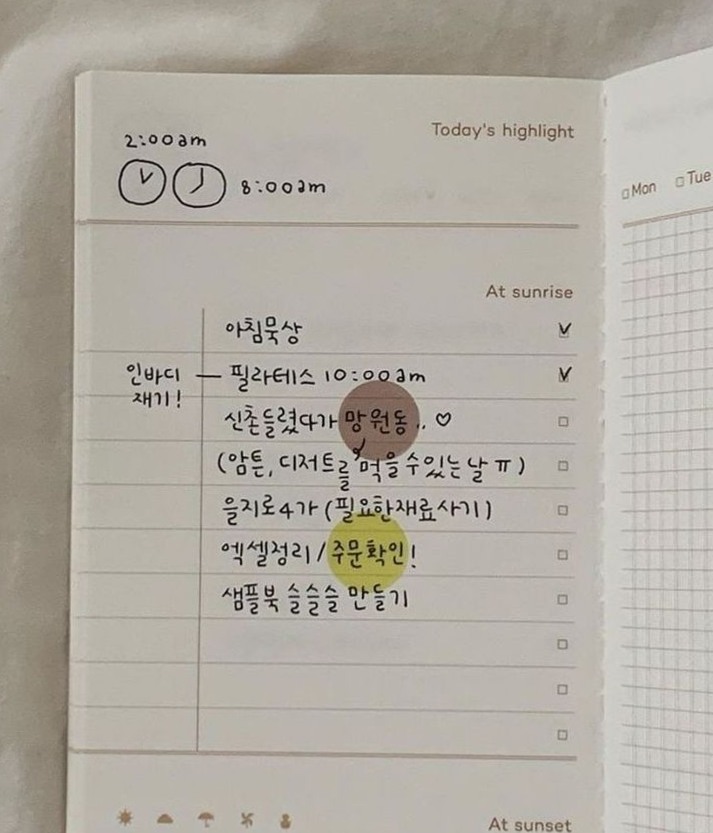 2:00am
Today's highlight
8:00am
Mon
Tue
At sunrise
아침묵상
인바디 재기! — 필라테스 10:00am
신촌들렸다가 망원동.. ♡
(암튼, 디저트를 먹을수있는날 ㅠ)
을지로4가 (필요한재료사기)
엑셀정리 / 주문확인!
샘플북 슬슬슬 만들기
At sunset